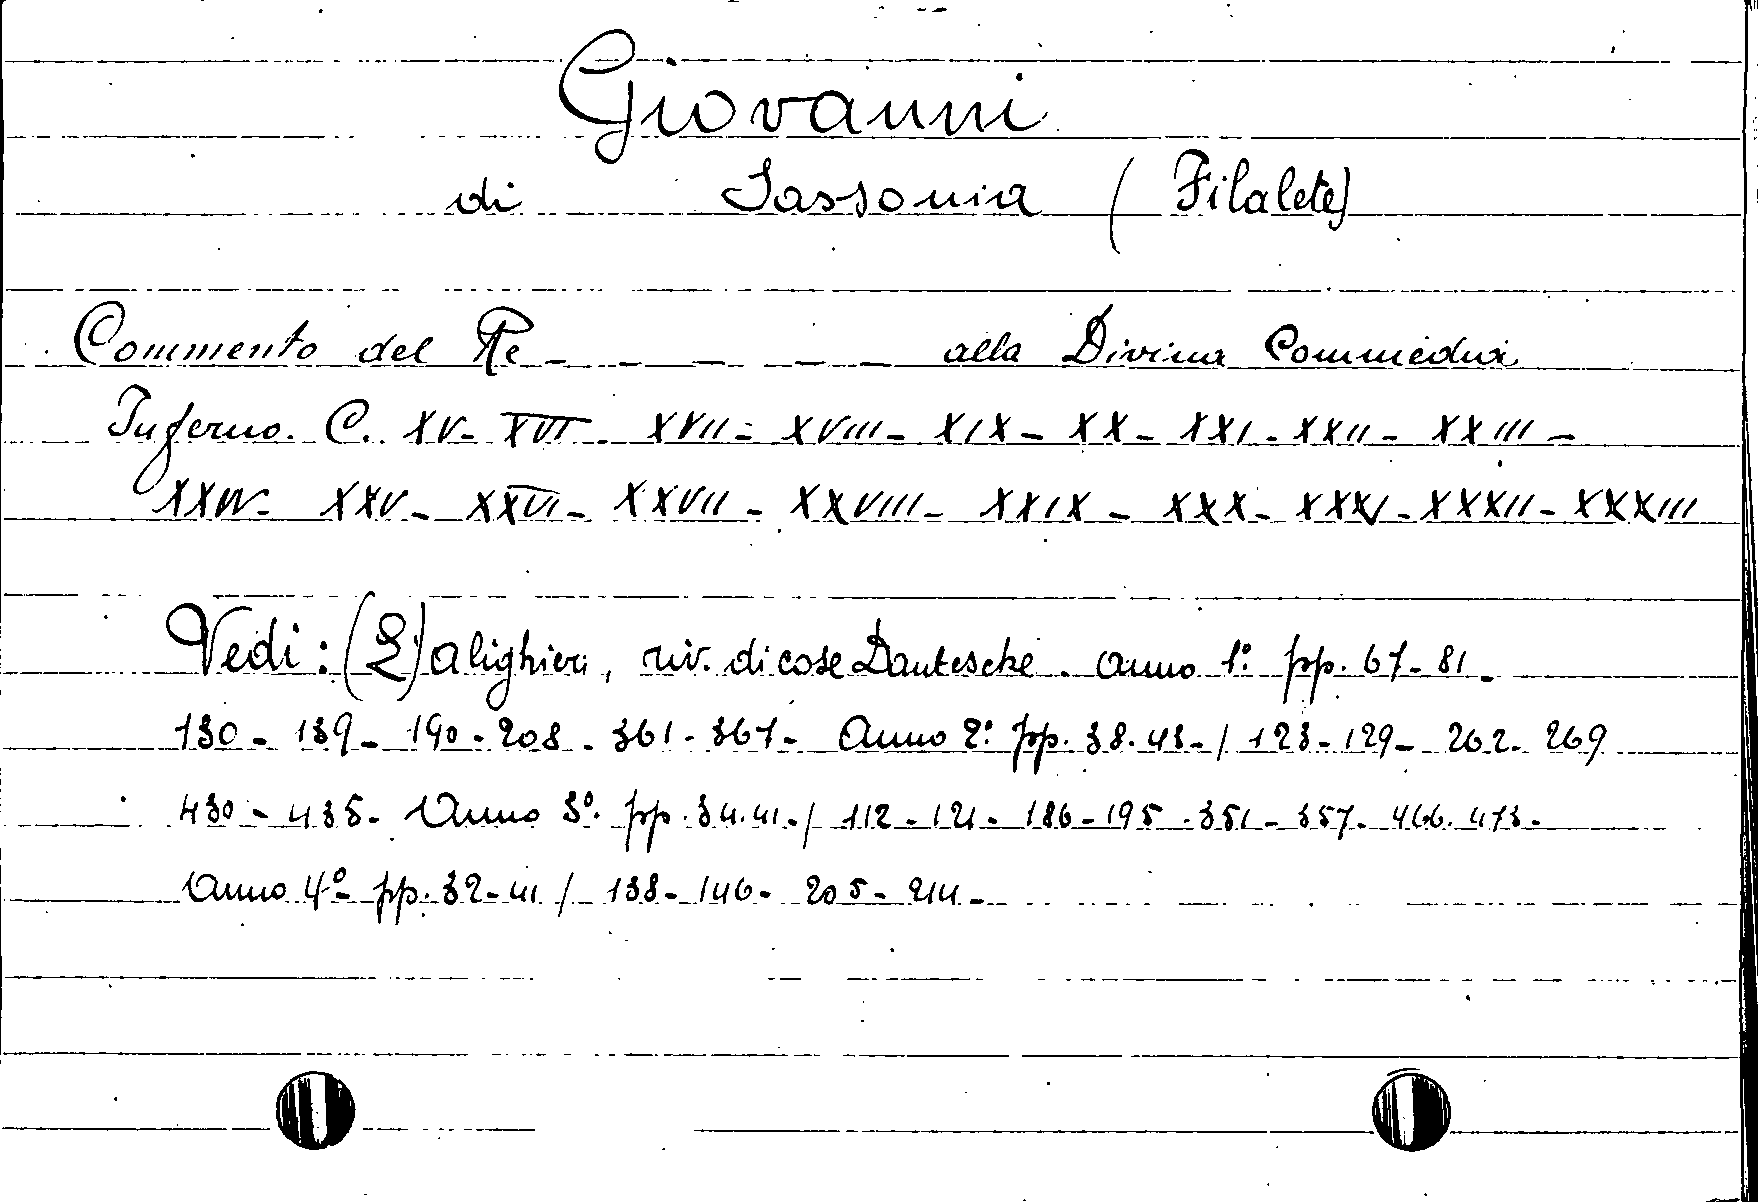 Giovanni
di Sassonia (Filalete)
Commento del Re _ _ _ _ _ alla Divina Commedia
Inferno. C. XV - XVI - XVII - XVIII - XIX - XX - XXI - XXII - XXIII -
XXIV - XXV - XXVI - XXVII - XXVIII - XXIX - XXX - XXXI - XXXII - XXXIII
Vedi: (L') Alighieri, riv. di cose Dantesche. Anno 1º pp. 67-81 -
130 - 139 - 190 - 208 - 361 - 367 - Anno 2º pp. 38.43 - / 123 - 129 - 262 - 269
430 - 435 - Anno 3º. pp. 34.41 - / 112 - 121 - 186 - 195 - 351 - 357 - 466. 473 -
Anno 4º pp. 32 - 41 / 138 - 146 - 205 - 214 -